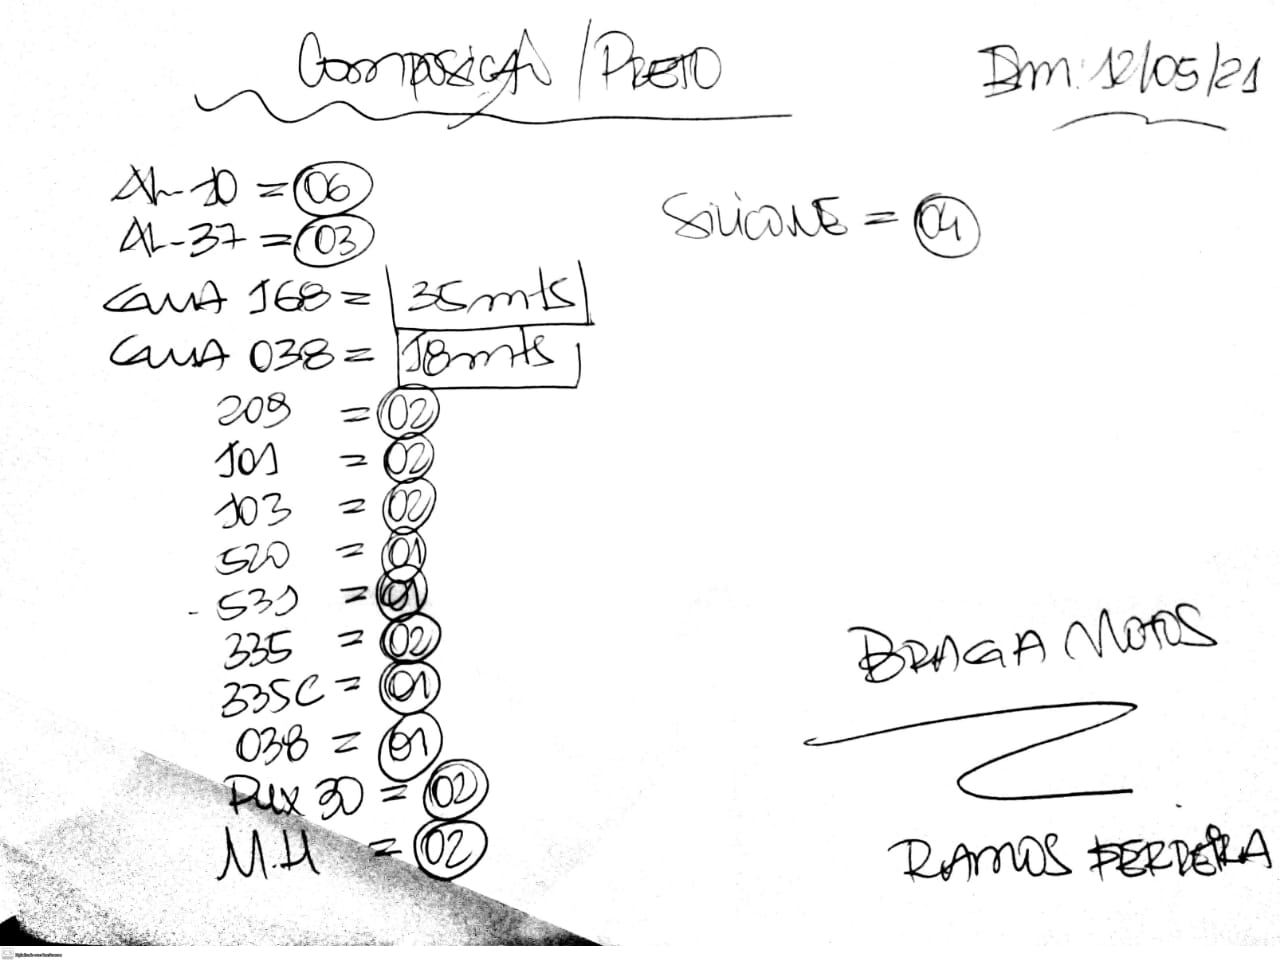 Composição / PRETO
Em: 12/05/21
AL-10 = 06
AL-37 = 03
168 = 35mts
038 = 18mts
209 = 02
101 = 02
103 = 02
520 = 01
531 = 01
335 = 02
335C = 01
038 = 01
Pux 30 = 02
M.H = 02
SILICONE = 04
BRAGA MOTOS
RAMOS FERREIRA